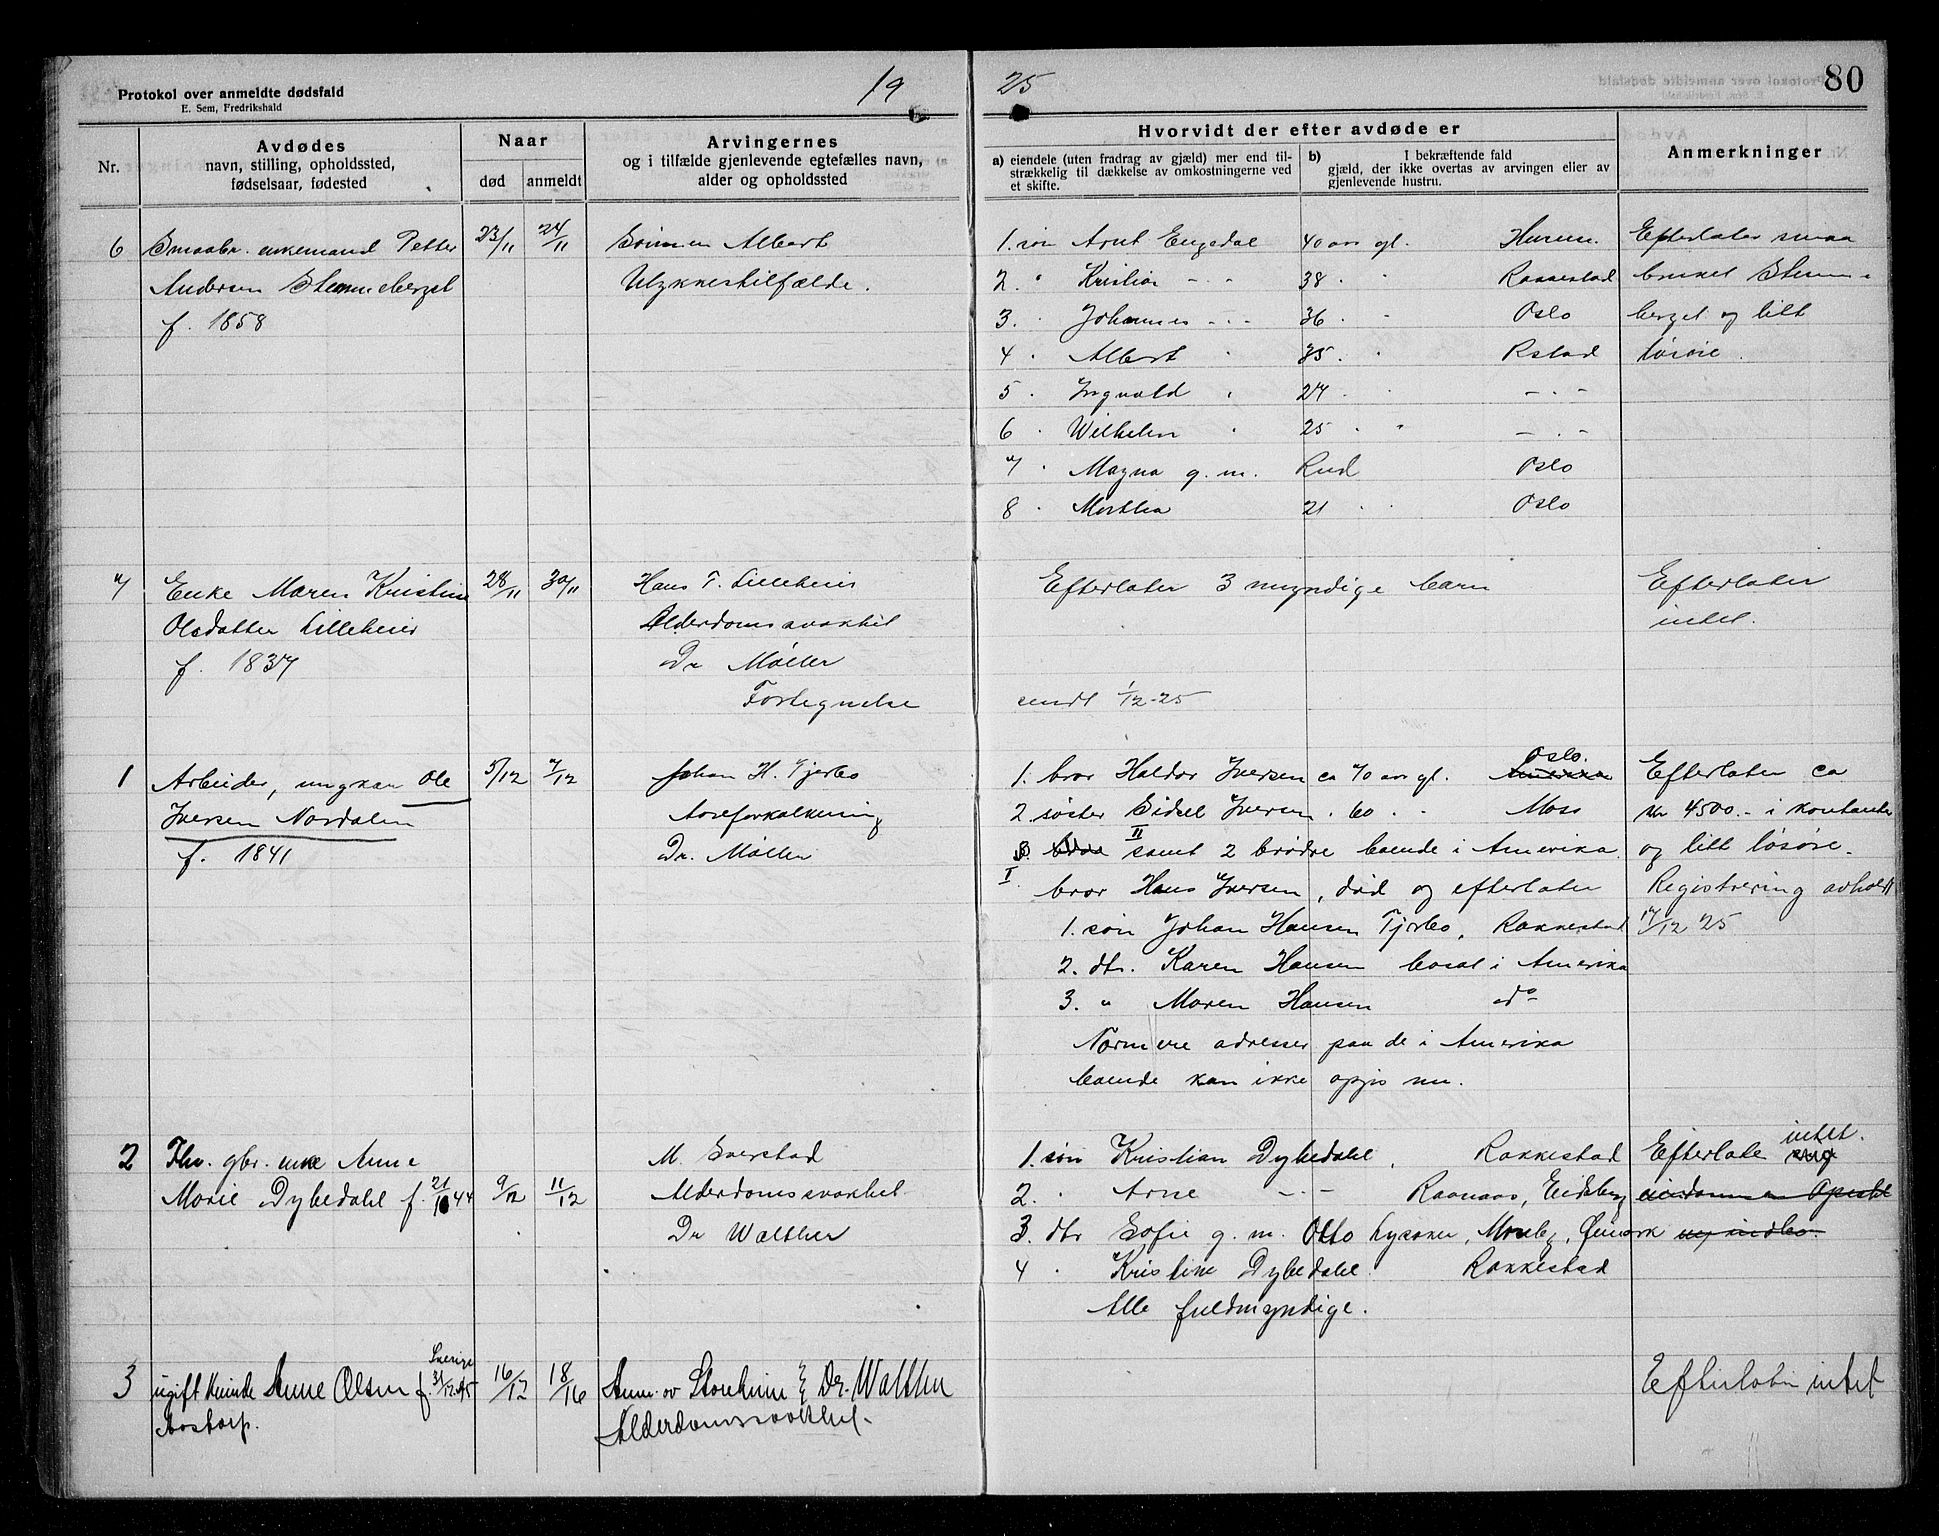 Protokol over anmeldte dødsfald
E. Sem, Fredrikshald
19 25
80
Nr.
Avdødes
navn, stilling, opholdssted,
fødselsaar, fødested
Naar
død
anmeldt
Arvingernes
og i tilfælde gjenlevende egtefælles navn,
alder og opholdssted
Hvorvidt der efter avdøde er
a) eiendele (uten fradrag av gjæld) mer end til-
strækkelig til dækkelse av omkostningerne ved
et skifte.
b) I bekræftende fald
gjæld, der ikke overtas av arvingen eller av
gjenlevende hustru.
Anmerkninger
6 Smaabr. enkemand Petter 23/11 24/11 Sønnen Albert
Andersen Stenneberget Ulykkestilfælde.
f. 1858
1. søn Arnt Engedal 40 aar gl. Hurum.
2. " Kristian - " - 38 " Rakkestad
3. " Johannes - " - 36 " Oslo
4 " Albert " 35 " Rstad
5 " Ingvald " 27 " - " -
6 " Wilhelm " 25 " " - " -
7 " Magna g. m. Rud Oslo
8 " Martha 21 " " Oslo
Efterlater smaa
bruket Stenne-
berget og litt
løsøre.
7 Enke Maren Kristine 28/11 30/11 Hans T. Lilleheier
Olsdatter Lilleheier Alderdomssvakhet
f. 1837 Dr Møller
Fortegnelse sendt 1/12-25
Efterlater 3 myndige barn
Efterlater
intet.
1 Arbeider, ungkar Ole 5/12 7/12 Johan H. Tjerbo
Iversen Nordalen Aareforkalkning
f. 1841 Dr. Møller
1. bror Haldor Iversen ca 70 aar gl. Amerika Oslo.
2 søster Sidsel Iversen " 60 " " Moss
3. II samt 2 brødre boende i Amerika.
I. bror Hans Iversen, død og efterlater
1. søn Johan Hansen Tjerbo, Rakkestad
2. dtr. Karen Hansen bosat i Amerika
3. " Maren Hansen do
Nærmere adresser paa de i Amerika
boende kan ikke opgis nu.
Efterlater ca
kr 4500.- i kontanter
og litt løsøre.
Registrering avholdt
17/12 25
2 Fhv. gbr. enke Anne
Marie Dybedahl f. 21/10 44 9/12 11/12 M. Sverstad
Alderdomssvakhet
Dr Walther
1. søn Kristian Dybedahl, Rakkestad
2. " Arne - " - Raanaas, Eidsberg
3. dtr Sofie g. m. Otto Lysaker, Moseby, Øimark
4 " Kristine Dybedahl Rakkestad
Alle fuldmyndige.
Efterlate intet.
eiendommen
og indbo.
3 ugift kvinde Anne Olsen f. Sverige 31/12 45 16/12 18/16 Anm. av Storheim & Dr. Walther
Aastorp. Alderdomssvakhet.
Efterlater intet